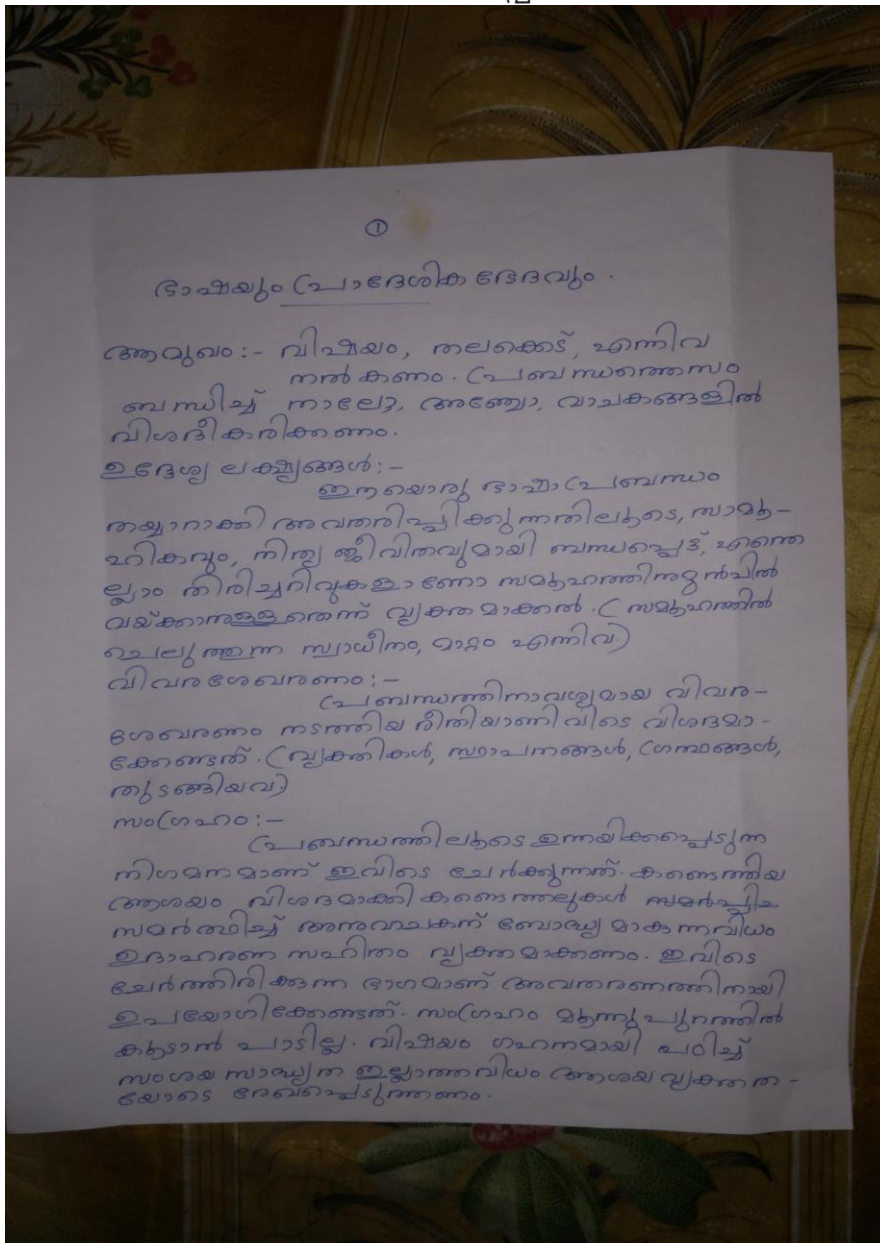 ①
ഭാഷയും പ്രാദേശിക ഭേദവും.
ആമുഖം :- വിഷയം, തലക്കെട്ട്, എന്നിവ
നൽകണം. പ്രബന്ധത്തെസം
ബന്ധിച്ച് നാലോ, അഞ്ചോ, വാചകങ്ങളിൽ
വിശദീകരിക്കണം.
ഉദ്ദേശ്യ ലക്ഷ്യങ്ങൾ :-
ഈയൊരു ഭാഷാ പ്രബന്ധം
തയ്യാറാക്കി അവതരിപ്പിക്കുന്നതിലൂടെ, സാമൂ-
ഹികവും, നിത്യ ജീവിതവുമായി ബന്ധപ്പെട്ട്, എന്തെ
ല്ലാം തിരിച്ചറിവുകളാണോ സമൂഹത്തിനുമുൻപിൽ
വയ്ക്കാനുള്ളതെന്ന് വ്യക്തമാക്കൽ. (സമൂഹത്തിൽ
ചെലുത്തുന്ന സ്വാധീനം, മാറ്റം എന്നിവ.)
വിവരശേഖരണം :-
പ്രബന്ധത്തിനാവശ്യമായ വിവര-
ശേഖരണം നടത്തിയ രീതിയാണിവിടെ വിശദമാ-
ക്കേണ്ടത്. (വ്യക്തികൾ, സ്ഥാപനങ്ങൾ, ഗ്രന്ഥങ്ങൾ,
തുടങ്ങിയവ)
സംഗ്രഹം :-
പ്രബന്ധത്തിലൂടെ ഉന്നയിക്കപ്പെടുന്ന
നിഗമനമാണ് ഇവിടെ ചേർക്കുന്നത്. കണ്ടെത്തിയ
ആശയം വിശദമാക്കി കണ്ടെത്തലുകൾ സമർപ്പിച്ച
സമർത്ഥിച്ച് അനുവാചകന് ബോദ്ധ്യമാകുന്നവിധം
ഉദാഹരണ സഹിതം വ്യക്തമാക്കണം. ഇവിടെ
ചേർത്തിരിക്കുന്ന ഭാഗമാണ് അവതരണത്തിനായി
ഉപയോഗിക്കേണ്ടത്. സംഗ്രഹം മൂന്നു പുറത്തിൽ
കൂടാൻ പാടില്ല. വിഷയം ഗഹനമായി പഠിച്ച്
സംശയ സാദ്ധ്യത ഇല്ലാത്തവിധം ആശയ വ്യക്തത-
യോടെ രേഖപ്പെടുത്തണം.